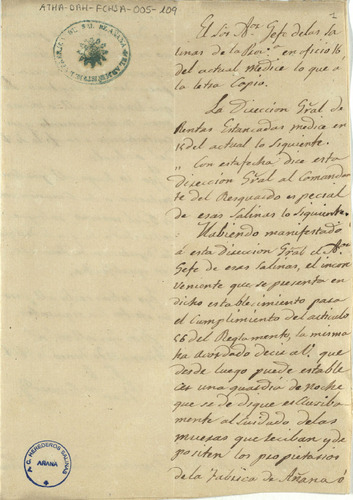 ATHA-DAH-FCHSA-005-109
El Sor. Admor. Gefe de las Sa
linas de la Prov.a en oficio 18
del actual me dice lo que á
la letra Copio.
La Direccion Gral. de
Rentas Estancadas me dice en
15 del actual lo siguiente.
" Con esta fecha dice esta
Direccion Gral al Comandan
te del Resguardo especial de
esas Salinas lo siguiente.
Habiendo manifestado
á esta Direccion Gral el Admor
Gefe de esas Salinas, el incon
veniente que se presenta en
dicho establecimiento para
el cumplimiento del articulo
56 del Reglamento, la misma
ha acordado decir al que
desde luego puede estable
cer una guardia de noche
que se dedique esclusiba
mente al cuidado, de las
muesas que reciban y de
positen los propietarios
de la Fabrica de Añana ó
A.C. HEREDEROS SALINAS
AÑANA